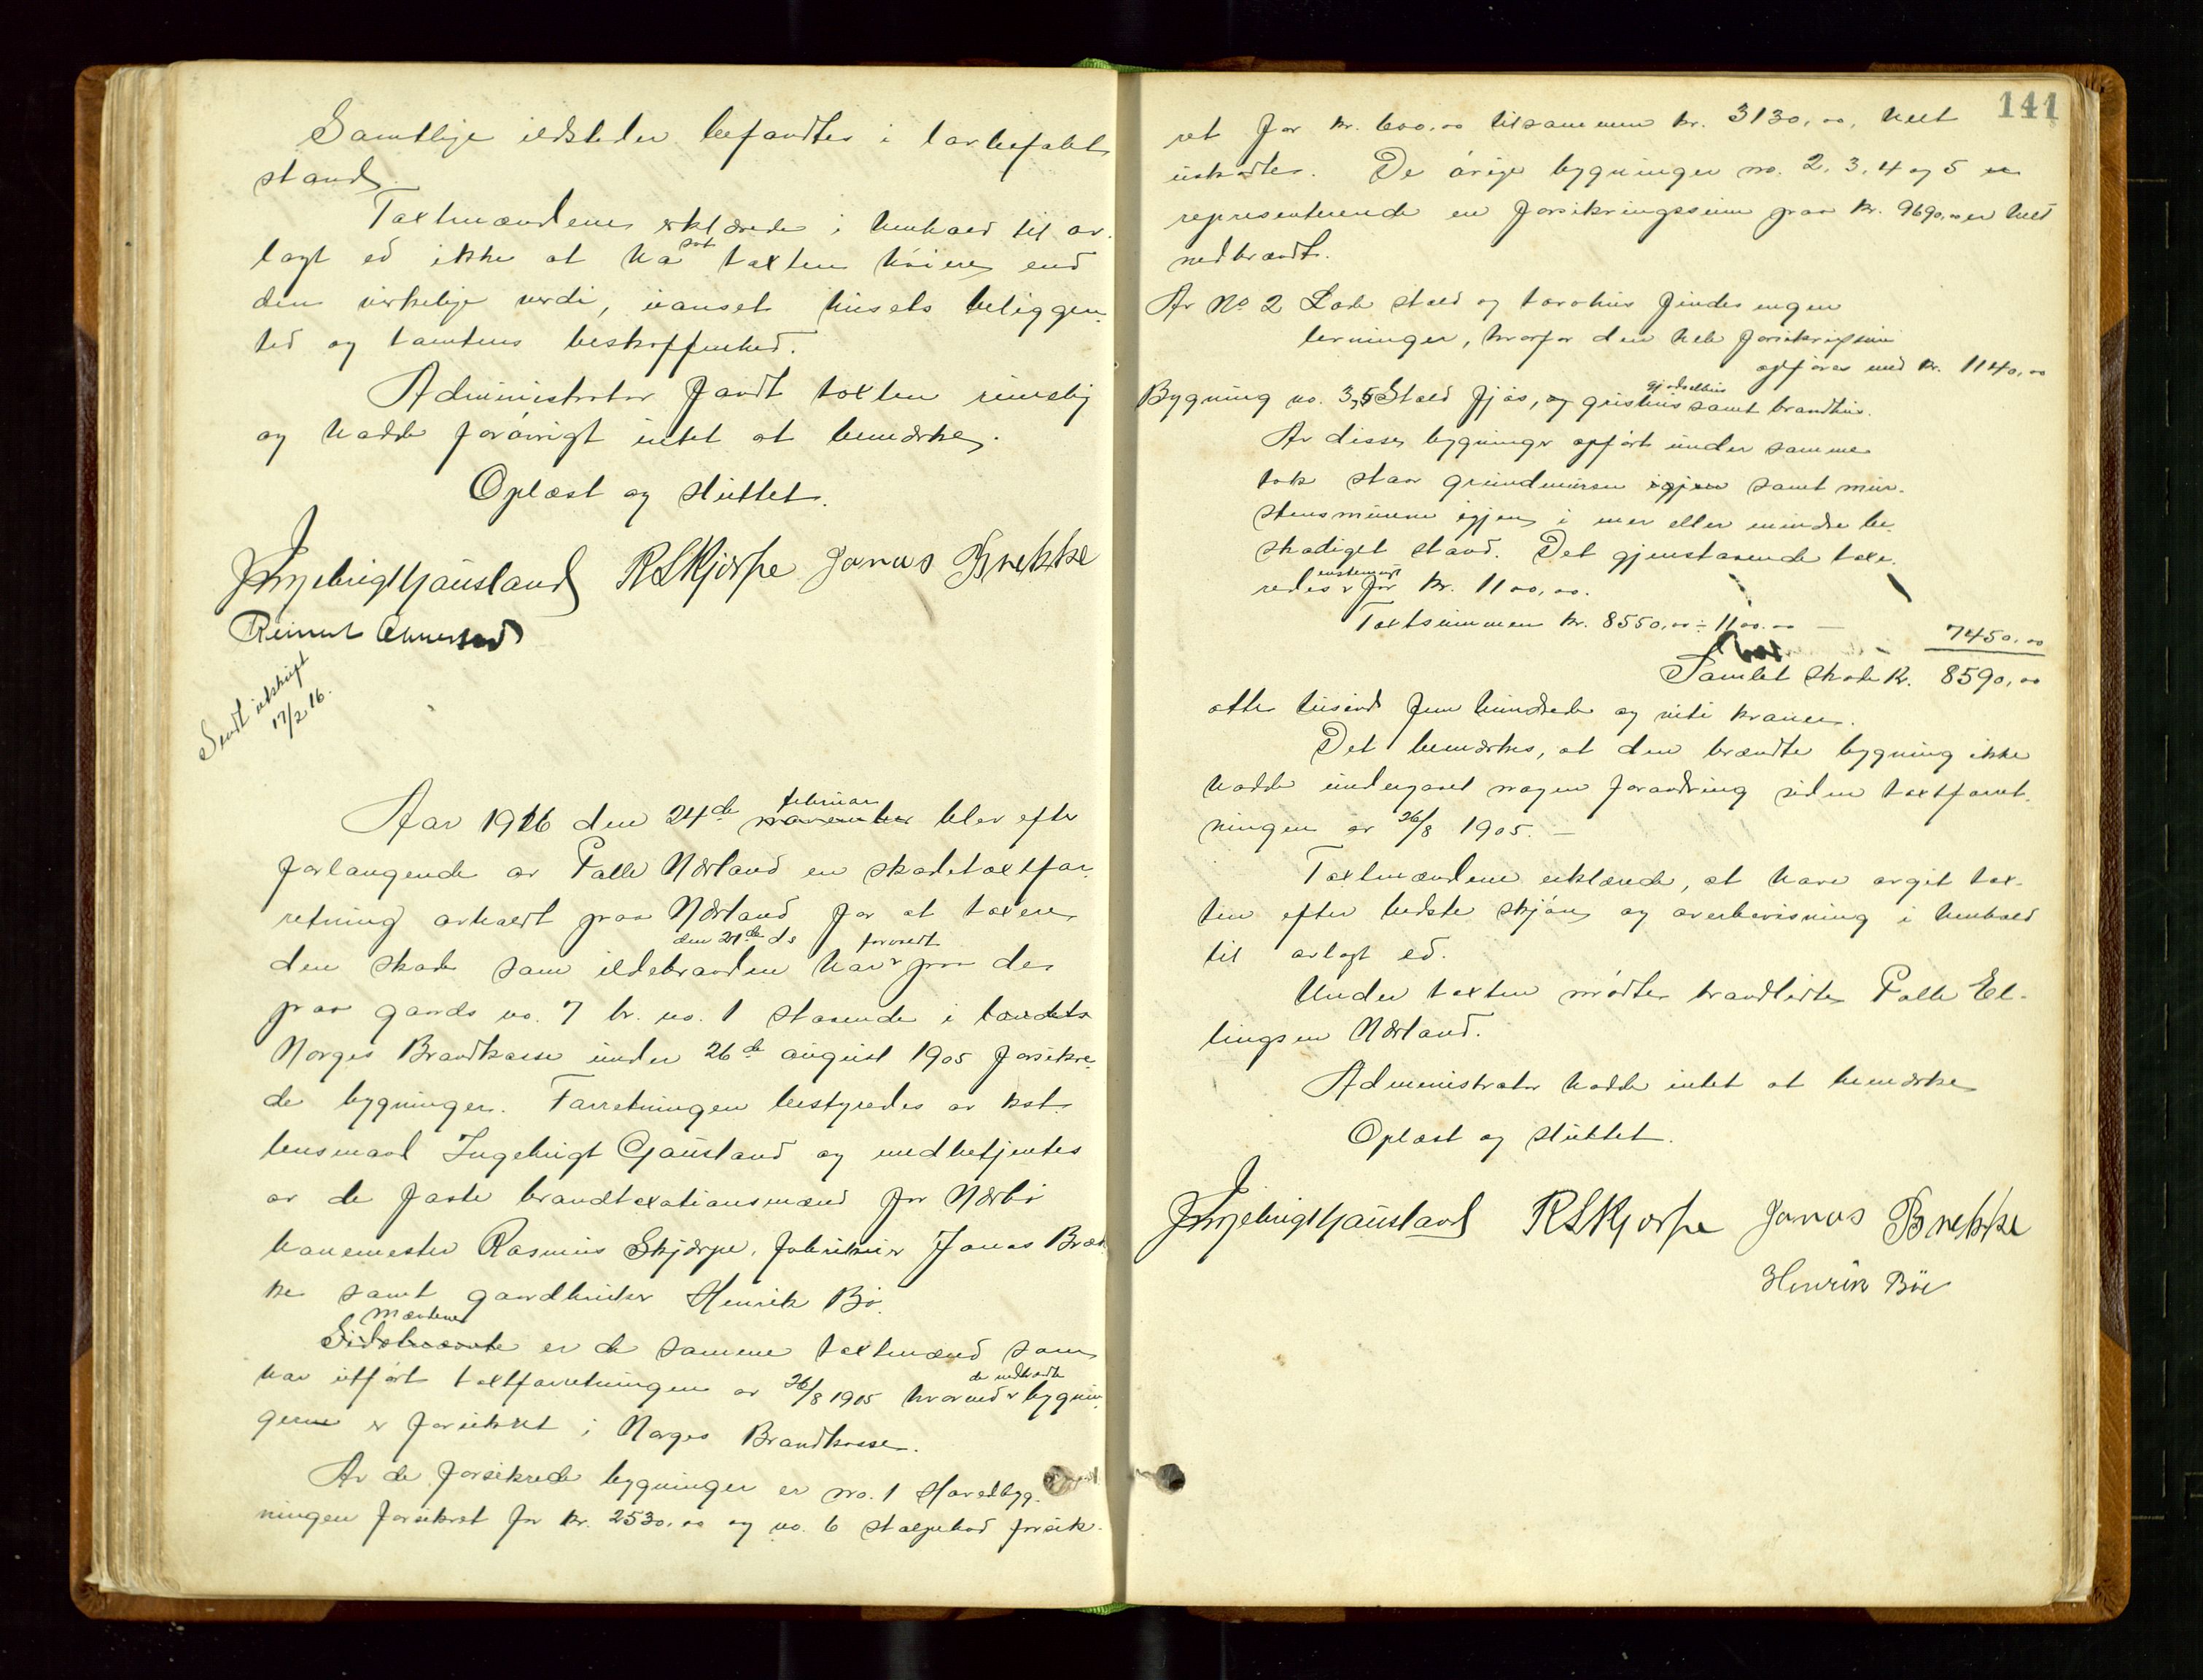 Samtlige ildsteder befandtes i lovbefalt
stand.
Taxtmændene erklærede i henhold til av-
lagt ed ikke at ha sat taxten høiere end
den virkelige verdi, uanset husets beliggen-
hed og tomtens beskaffenhed.
Administrator fandt taxten rimelig
og hadde forøvrigt intet at bemerke.
Oplæst og sluttet.
Ingebrigt Gausland RSKjørpe Jonas Brekke
Reinert
Sendt utskrift
17/2 16.
Aar 1916 den 24de november februar blev efter
forlangende av Palle Nærland en skadetaxtfor-
retning avholdt paa Nærland for at taxere
den skade som ildebranden den 21de ds har forvoldt paa de
paa gaards no. 7 br. no. 1 staaende i landets
Norges Brandkasse under 26de august 1905 forsikre-
de bygninger. Forretningen bestyredes av kst.
lensmand Ingebrigt Gausland og medbetjentes
av de faste brandtaxationsmænd for Nærbø
banemester Rasmus Skjørpe, fabrikeier Jonas Bræk-
ke samt gaardbruker Henrik Bø.
Sidstnævnte Mændene er de samme taxtmænd som
har utført taxtforretningen av 26/8 1905 hvorved de nedbrændte bygnin-
gerne er forsikret i Norges Brandkasse.
Av de forsikrede bygninger er no. 1 Hovedbyg-
ningen forsikret for kr. 2530,00 og no. 6 stolpebod forsik-
141
ret for kr. 600,00 tilsammen kr. 3130,00, helt
uskadte. De øvrige bygninger no. 2, 3, 4 og 5 er
representerende en forsikringssum paa kr. 9690,00 er helt
nedbrændt.
Av No 2 Lade stald og torvhus findes ingen
levninger, hvorfor den hele forsikringssum
opføres med kr. 1140,00
Bygning no. 3,5 Stald fjøs, og grishus gjødselhus samt brandhus.
Av disse bygninger opført under samme
tak staar grundmuren igjen samt mur-
stensmurene igjen i mer eller mindre be-
skadiget stand. Det gjenstaaende taxe-
redes enstemmigt for kr. 1100,00.
Taxtsummen kr. 8550,00 ÷ 1100.00 — 7450,00
Samlet skade kr. 8590,00
otte tusind fem hundrede og nitti kroner.
Det bemerkes, at den brændte bygning ikke
hadde undergaaet nogen forandring siden taxtforret-
ningen av 26/8 1905. —
Taxtmændene erklærede, at have avgit tax-
ten efter bedste skjøn og overbevisning i henhold
til avlagt ed.
Under taxten mødte brandlidte Palle El-
lingsen Nærland.
Administrator hadde intet at bemerke
Oplæst og sluttet.
Ingebrigt Gausland RSKjørpe Jonas Brekke
Henrik Böe